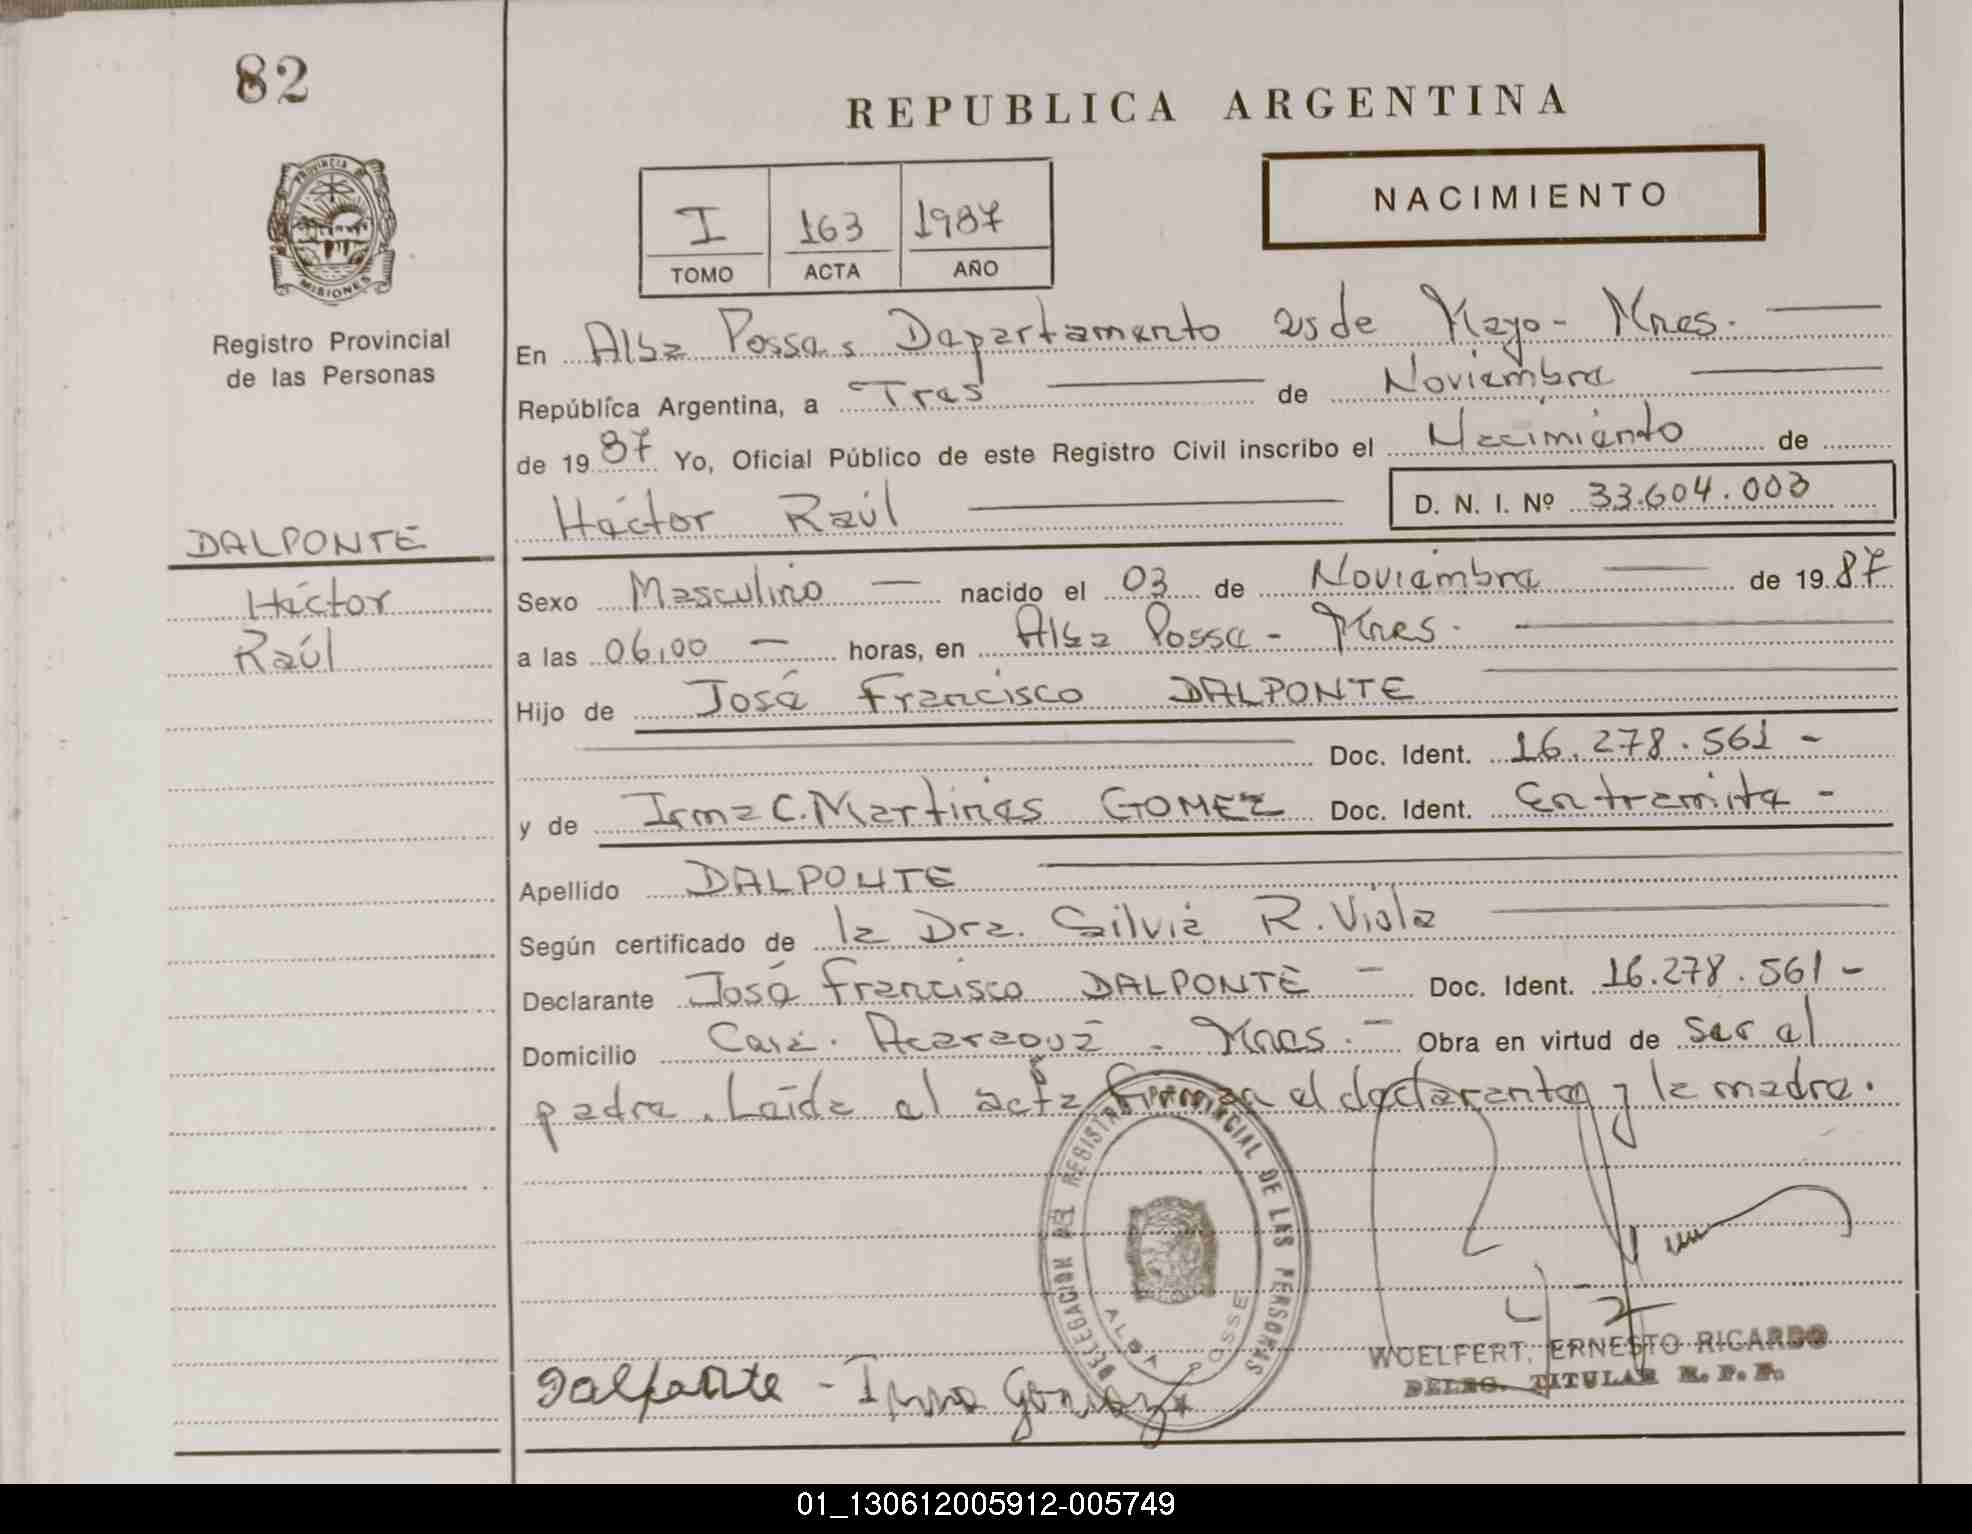 82
REPUBLICA ARGENTINA
PROVINCIA DE
MISIONES
Registro Provincial
de las Personas
NACIMIENTO
I 163 1987
TOMO ACTA AÑO
En Alba Posse, Departamento 25 de Mayo - Mnes.
República Argentina, a Tres de Noviembre
de 1987 Yo, Oficial Público de este Registro Civil inscribo el Nacimiento de
Héctor Raúl D. N. I. Nº 33.604.003
DALPONTE
Héctor
Raúl
Sexo Masculino nacido el 03 de Noviembre de 1987
a las 06,00 horas, en Alba Posse - Mnes.
Hijo de José Francisco DALPONTE
Doc. Ident. 16.278.561 -
y de Irma C. Martines GOMEZ Doc. Ident. En tramite -
Apellido DALPONTE
Según certificado de la Dra. Silvia R. Viola
Declarante José Francisco DALPONTE - Doc. Ident. 16.278.561 -
Domicilio Acaraguá - Mnes. - Obra en virtud de ser el
padre. Leída el acta firman el declarante y la madre.
DELEGACION DEL REGISTRO PROVINCIAL DE LAS PERSONAS
ALBA POSSE
WOELFERT, ERNESTO RICARDO
DELEG. TITULAR R. P. P.
Dalponte - Irma Gomez
01_130612005912-005749